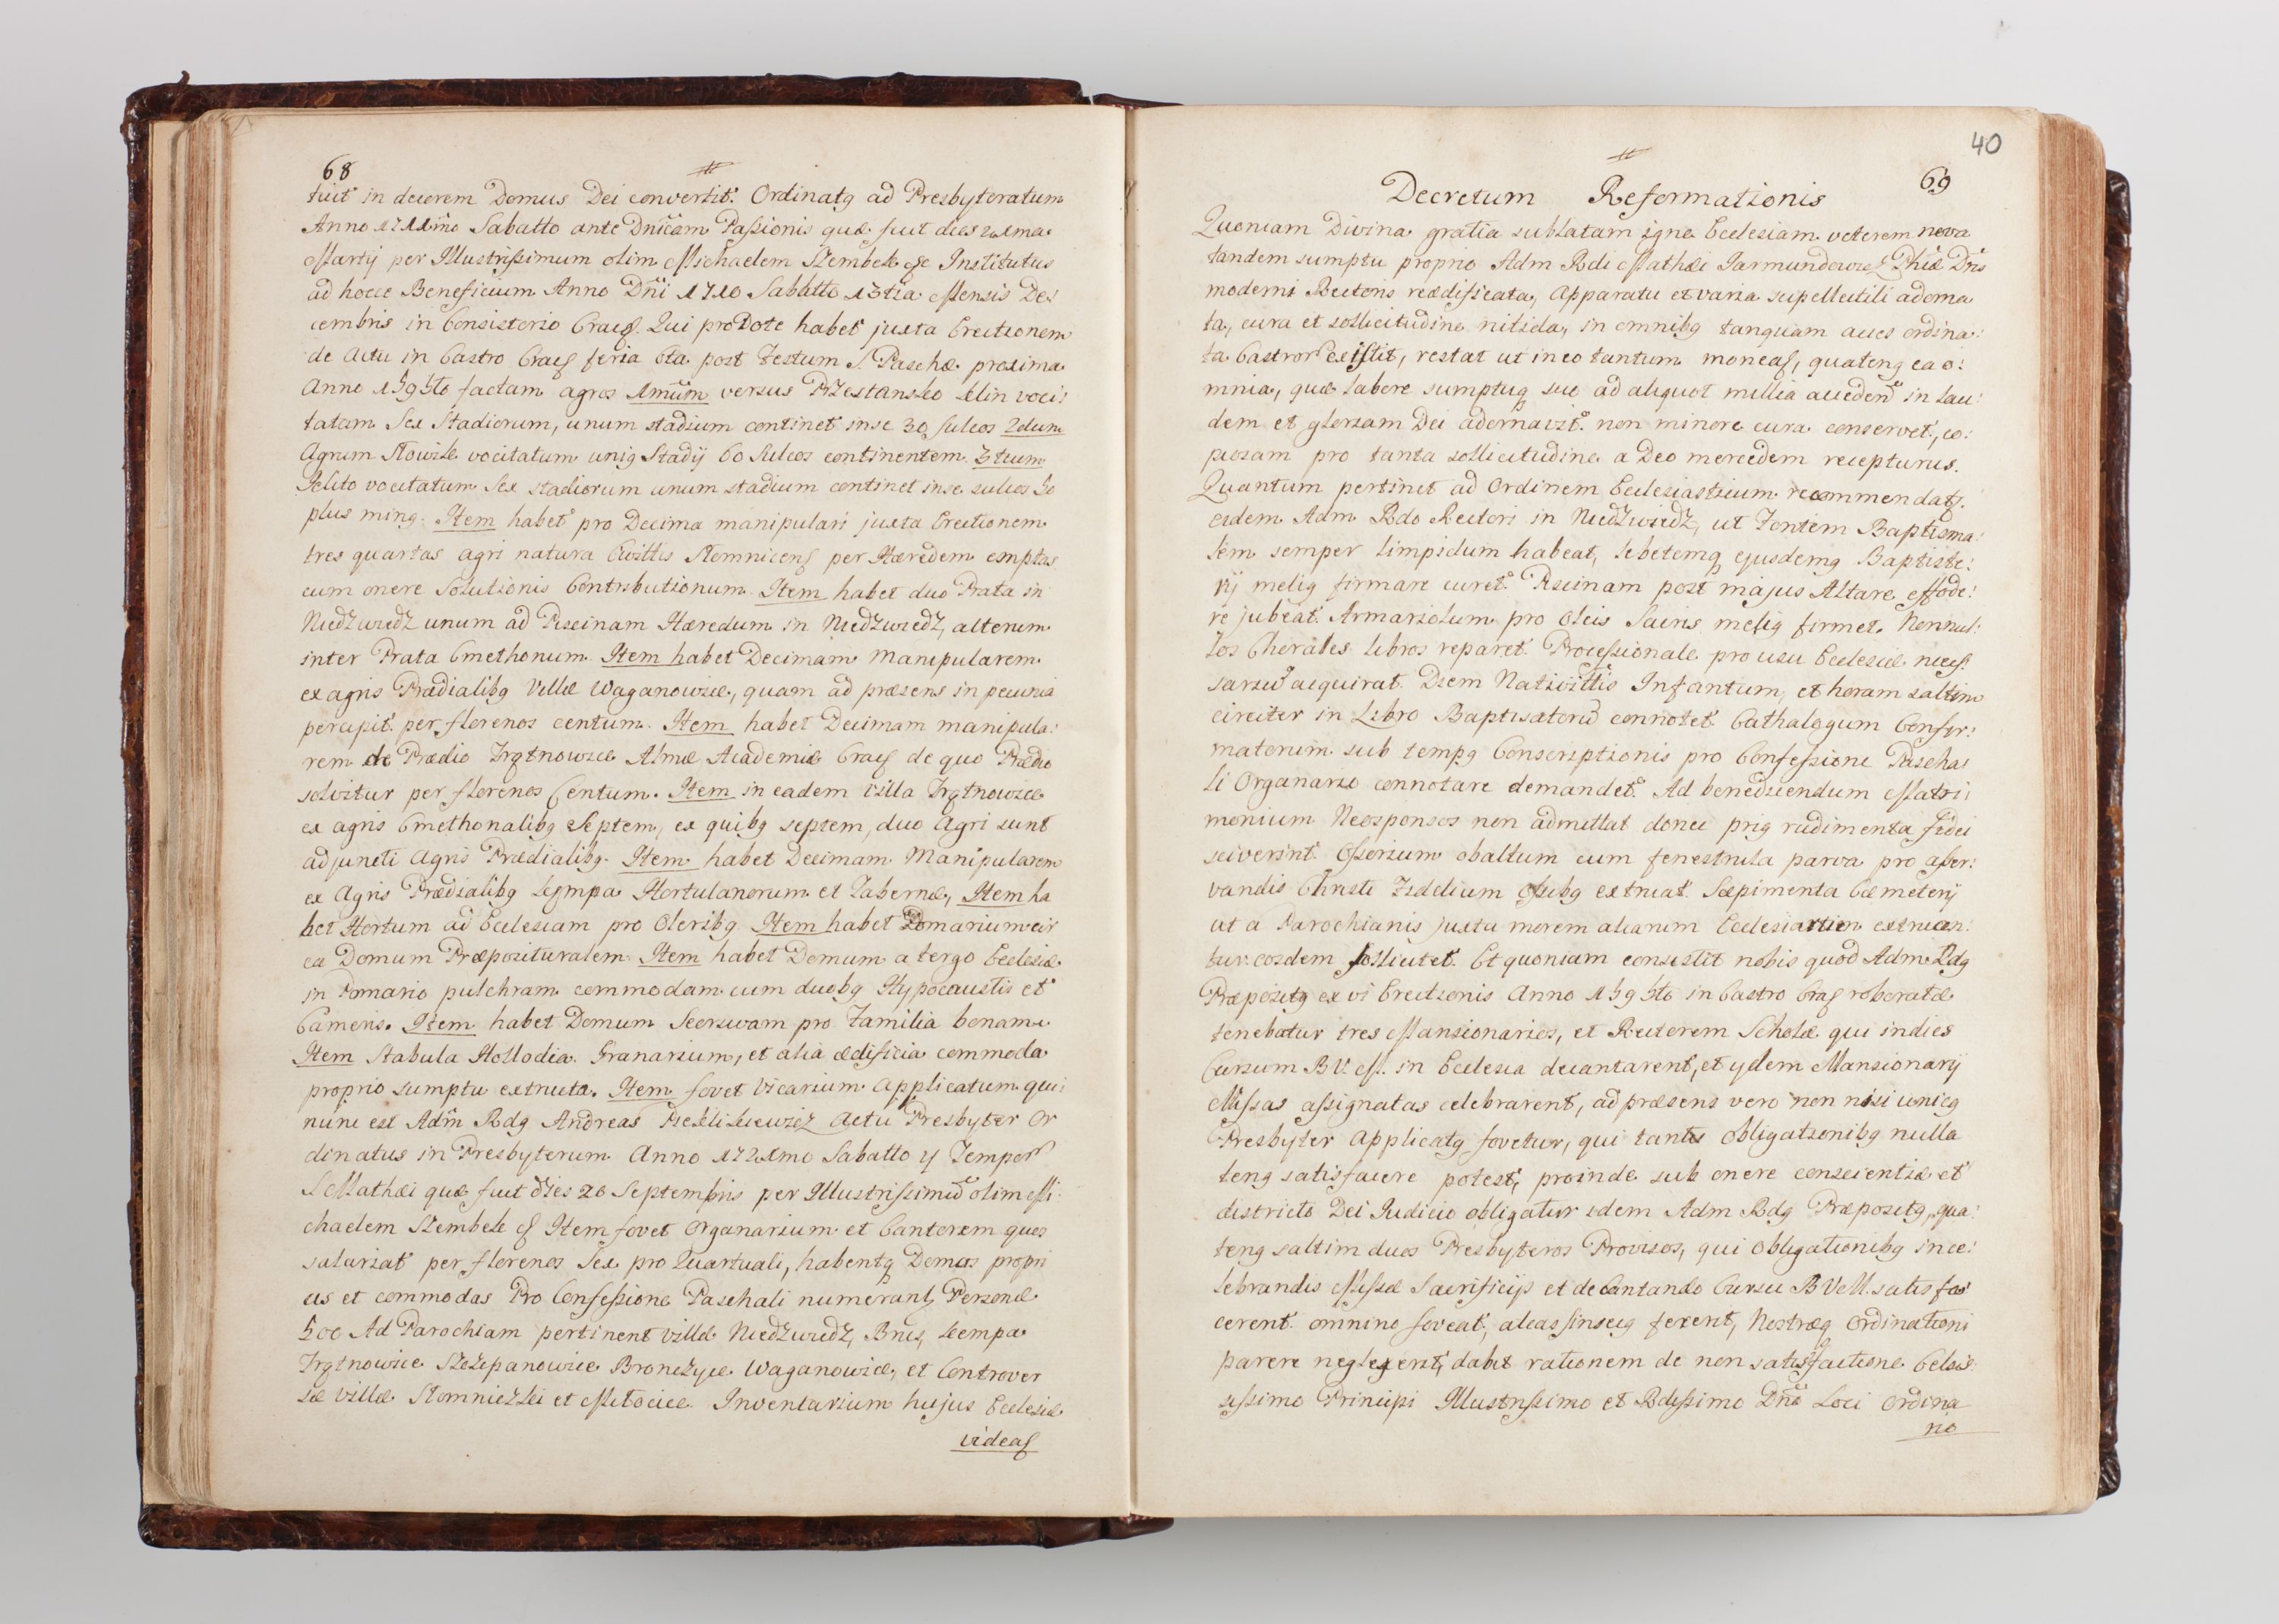 68
tuit in decorem Domus Dei convertit. Ordinatq ad Presbyteratum
Anno 1711mo Sabatto ante Dnicam Passionis quæ fuit dies 21ma
Martij per Illustrissimum olim Michaelem Szembek &c Institutus
ad hocce Beneficium Anno Dni 1710 Sabatto 13tia Mensis De:
cembris in Consistorio Crac. Qui pro Dote habet juxta Erectionem
de actu in Castro Crac feria 6ta post Festum S. Paschæ proxima
Anno 1595to factam agros 1mum versus Przestansko klin voci:
tatam Sex Stadiorum, unum stadium continet in se 30 sulcos 2dum
Agrum Nowizk vocitatum uniq Stadij 60 Sulcos continentem 3tium
vocitatum Sex stadiorum unum stadium continet in se sulcos 30
plus minq. Item habet pro Decima manipulari juxta Erectionem
tres quartas agri natura Civittis Slomnicens per Hæredem emptas
cum onere Solutionis Contributionum. Item habet duo Prata in
Niedzwiedz unum ad Piscinam Hæredum in Niedzwiedz, alterum
inter Prata Cmethonum. Item habet Decimam Manipularem
ex agris Prædialibq Villæ Waganowicæ, quam ad præsens in pecunia
percipit per florenos centum. Item habet Decimam manipula:
rem de Prædio Irqtnowice Almæ Academiæ Crac de quo Prædio
solvitur per florenos Centum. Item in eadem villa Irqtnowice
ex agris Cmethonalibq Septem, ex quibq septem, duo Agri sunt
adjuncti Agris Prædialibq. Item habet Decimam Manipularem
ex Agris Prædialibq Kępa Hortulanorum et Tabernæ, Item ha
bet Hortum ad Ecclesiam pro Oleribq. Item habet Pomarium cir
ca Domum Præposituralem Item habet Domum a tergo Ecclesiæ
in Pomario pulchram commodam cum duobq Hypocaustis et
Cameris. Item habet Domum Seorsivam pro Familia bonam
Item Stabula Hollodia Granarium, et alia ædificia commoda
proprio sumptu extructa. Item fovet Vicarium Applicatum qui:
nunc est Adm Rdq Andreas Piekliskiewicz Actu Presbyter Or
dinatus in Presbyterum Anno 1721mo Sabatto 4 Tempor
S Mathæi quæ fuit dies 20 Septembris per Illustrissimu olim Mi
chaelem Szembek &c Item fovet Organarium et Cantorem quos
salariat per florenos Sex pro Quartuali, habentq Domos propri
as et commodas Pro Confessione Paschali numerant Personæ
500 Ad Parochiam pertinent villæ Niedzwiedz, Bnis, Kempa
Irqtnowice Szczepanowice Bronczyce Waganowice, et Controver
sæ villæ Slomniczki et Mitocice. Inventarium hujus Ecclesiæ
videas
40
69
Decretum Reformationis
Quoniam Divina gratia sublatam igne Ecclesiam veterem nova
tandem sumptu proprio Adm Rdi Mathæi Jarmundowicz Phiæ Dris
moderni Rectoris reædificata, Apparatu et varia supellectili adorna
ta, cura et sollicitudine nitida, in omnibq tanquam acies ordina:
ta Castror existit, restat ut in eo tantum moneas, quatenq ea o:
mnia, quæ labore sumptuq suo ad aliquot millia acceden in lau:
dem et gloriam Dei adornavit. non minore cura conservet, co:
piosam pro tanta sollicitudine a Deo mercedem recepturus.
Quantum pertinet ad Ordinem Ecclesiasticum recommendatq.
eidem Adm Rdo Rectori in Niedzwiedz, ut Fontem Baptisma:
lem semper limpidum habeat, lebetemq ejusdemq Baptiste:
rij meliq firmare curet. Piscinam post majus Altare effode:
re jubeat. Armariolum pro Oleis Sacris meliq firmet. Nonnul:
los Chorales libros reparet. Processionale pro usu Ecclesiæ neces:
sariu acquirat. Diem Nativittis Infantum, et horam saltim
circiter in Libro Baptisatoru connotet Cathalogum Confir:
matorum sub tempq Conscriptionis pro Confessione Pascha
li Organario connotare demandet. Ad benedicendum Matri:
monium Neosponsos non admittat donec priq rudimenta fidei
sciverint. Ossorium obaltum cum fenestrula parva pro asser:
vandis Christi Fidelium Ossibq extruat. Sæpimenta Cæmeterij
ut a Parochianis juxta morem aliarum Ecclesiarum extruan:
tur eosdem sollicitet. Et quoniam consistit nobis quod Adm Rdq
Præpositq ex vi Erectionis Anno 1595to in Castro Crac roboratæ
tenebatur tres Mansionarios, et Rectorem Scholæ qui indies
Cursum B.V.M. in Ecclesia decantarent, et ydem Mansionarij
Missas assignatas celebrarent, ad præsens vero non nisi unicq
Presbyter Applicatq fovetur, qui tantis obligationibq nulla
tenq satisfacere potest, proinde sub onere conscientiæ et
districto Dei Judicio obligatur idem Adm Rdq Præpositq, qua:
tenq saltim duos Presbyteros Provisos, qui Obligationibq in ce:
lebrandis Missæ Sacrificijs et decantando Cursu B V M. satis fa
cerent. omnino foveat, alias sinsecq fecerit, Nostræq Ordinationi
parere neglexerit, dabit rationem de non satisfactione Celsis:
sissimo Principi Illustrissimo et Rdissimo Dno Loci Ordina
rio